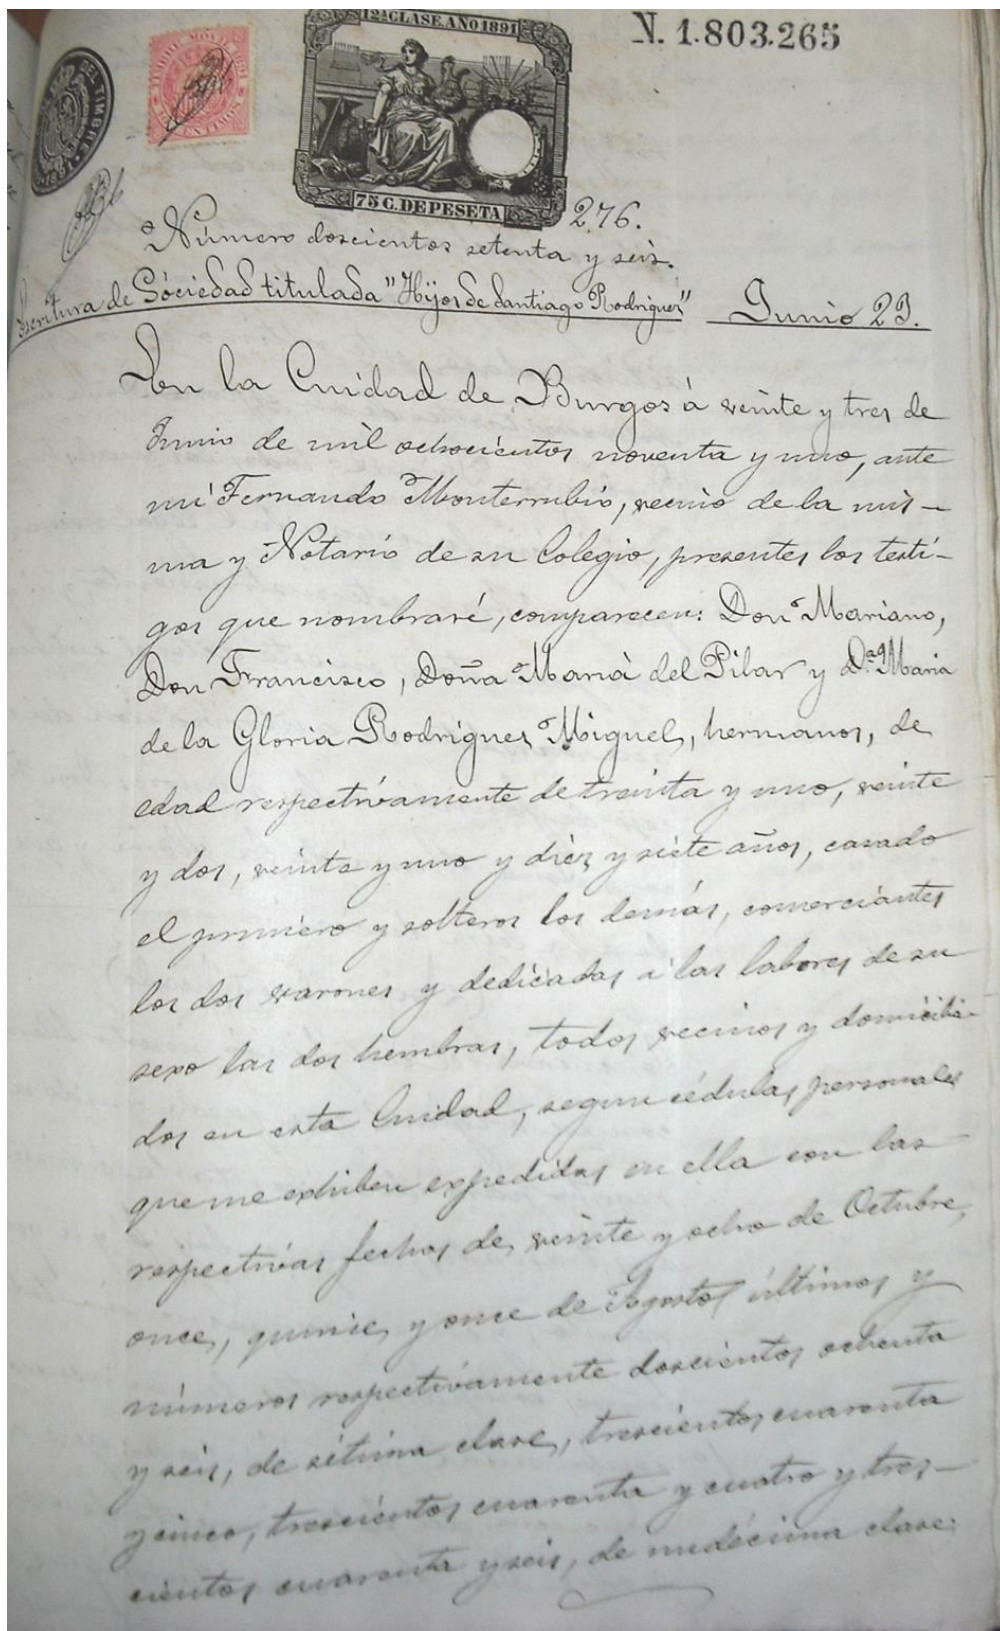 12ª CLASE. AÑO 1891
N. 1.803.265
DEL TIMBRE
TIMBRE MÓVIL
75 C. DE PESETA
276.
Número doscientos setenta y seis.
Escritura de Sociedad titulada "Hijos de Santiago Rodriguez" Junio 23.
En la Ciudad de Burgos á veinte y tres de
Junio de mil ochocientos noventa y uno, ante
mi Fernando Monterrubio, vecino de la mis-
ma y Notario de su Colegio, presentes los testi-
gos que nombraré, comparecen: Don Mariano,
Don Francisco, Doña Maria del Pilar y D.ª Maria
de la Gloria Rodriguez Miguel, hermanos, de
edad respectivamente de treinta y uno, veinte
y dos, veinte y uno y diez y siete años, casado
el primero y solteros los demás, comerciantes
los dos varones y dedicadas á las labores de su
sexo las dos hembras, todos vecinos y domicilia-
dos en esta Ciudad, segun cédulas personales
que me exhiben expedidas en ella con las
respectivas fechas de veinte y ocho de Octubre,
once, quince, y once de Agosto últimos y
números respectivamente doscientos ochenta
y seis, de sétima clase, trescientos cuarenta
y cinco, trescientos cuarenta y cuatro y tres-
cientos cuarenta y seis, de undécima clase: